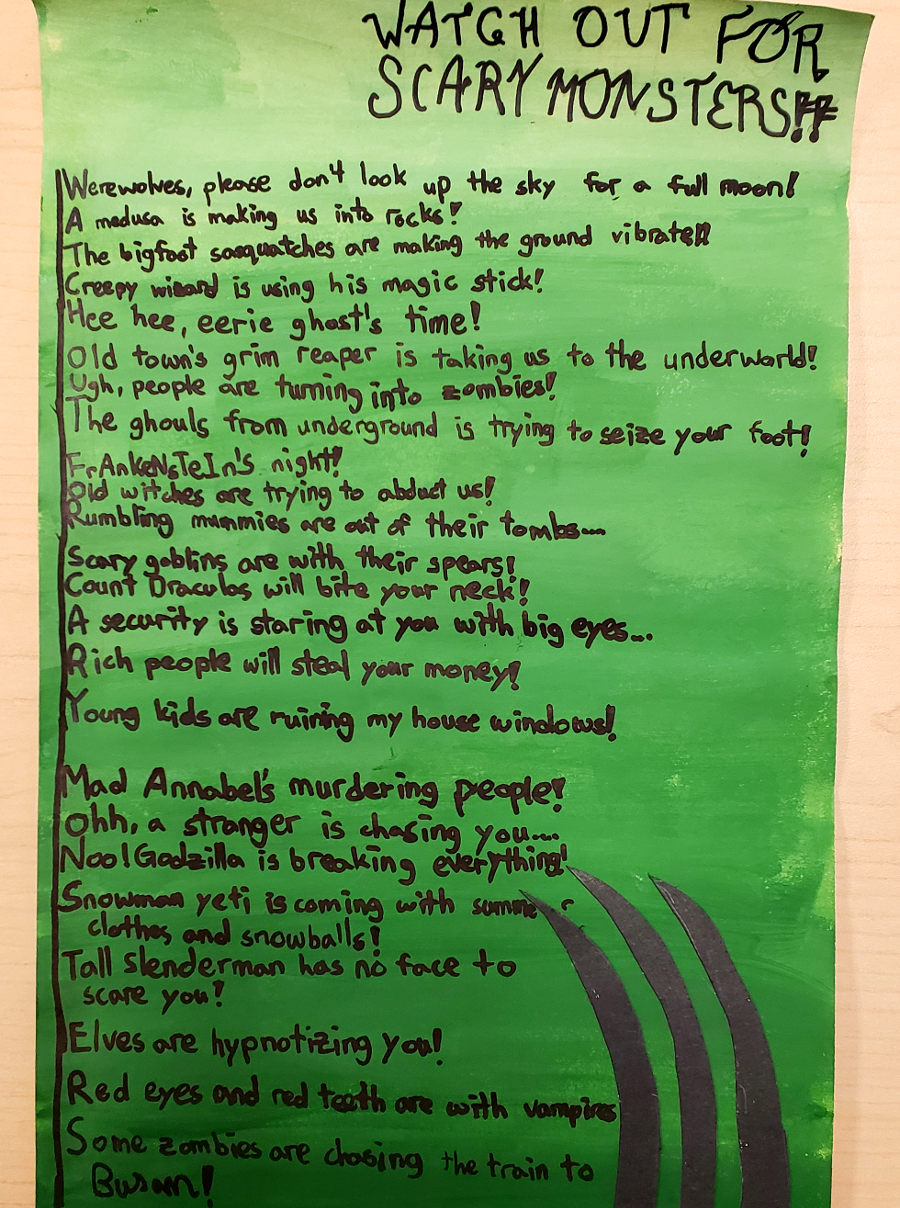 WATCH OUT FOR
SCARY MONSTERS!!
Werewolves, please don't look up the sky for a full moon!
A medusa is making us into rocks!
The bigfoot sasquatches are making the ground vibrate!!
Creepy wizard is using his magic stick!
Hee hee, eerie ghost's time!
Old town's grim reaper is taking us to the underworld!
Ugh, people are turning into zombies!
The ghouls from underground is trying to seize your foot!
FrAnkeNsTeIn's night!
Old witches are trying to abduct us!
Rumbling mummies are out of their tombs....
Scary goblins are with their spears!
Count Draculas will bite your neck!
A security is staring at you with big eyes...
Rich people will steal your money!
Young kids are ruining my house windows!
Mad Annabel's murdering people!
Ohh, a stranger is chasing you....
Noo! Godzilla is breaking everything!
Snowman yeti is coming with summer
clothes and snowballs!
Tall slenderman has no face to
scare you!
Elves are hypnotizing you!
Red eyes and red teeth are with vampires
Some zombies are chasing the train to
Busan!